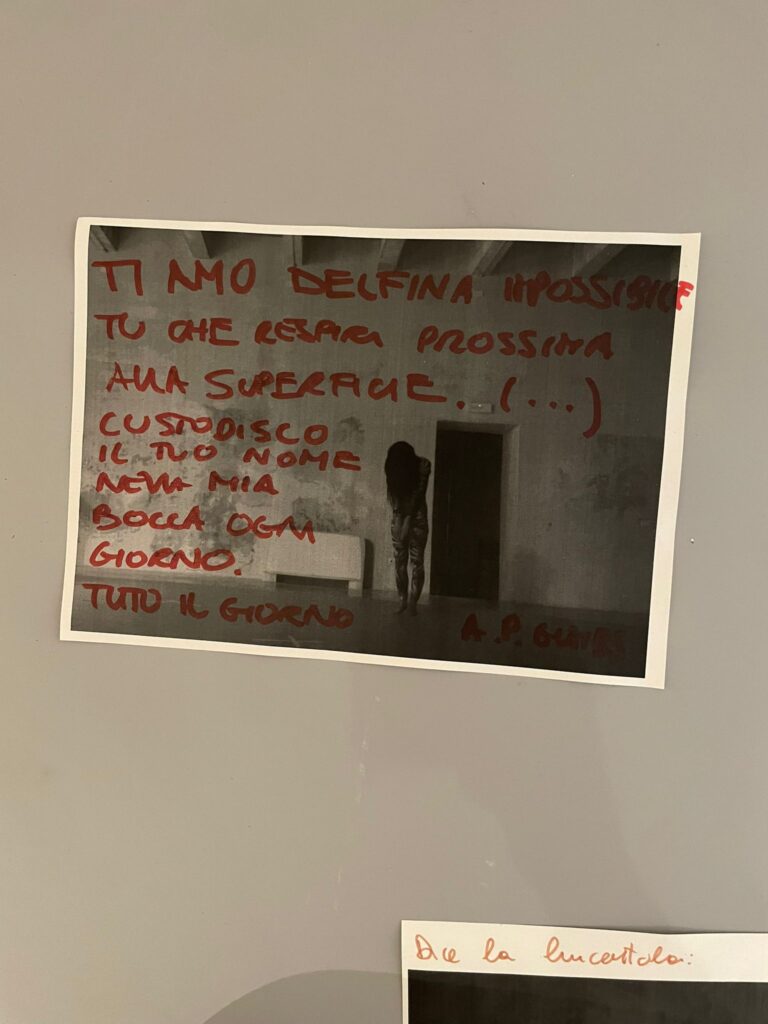 TI AMO DELFINA IMPOSSIBILE
TU CHE RESPIRI PROSSIMA
ALLA SUPERFICIE. (...)
CUSTODISCO
IL TUO NOME
NELLA MIA
BOCCA OGNI
GIORNO.
TUTO IL GIORNO
A.P.
Dice la